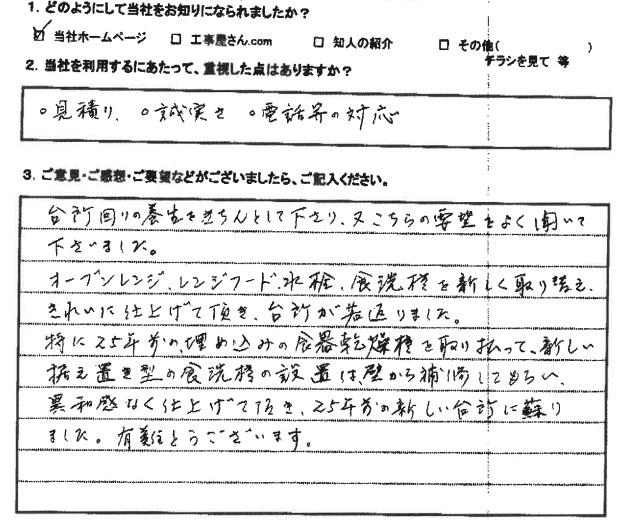 1. どのようにして当社をお知りになられましたか？
☑ 当社ホームページ □ 工事屋さん.com □ 知人の紹介 □ その他( )
チラシを見て 等
2. 当社を利用するにあたって、重視した点はありますか？
○見積り、 ○誠実さ ○電話等の対応
3. ご意見・ご感想・ご要望などがございましたら、ご記入ください。
台所回りの養生をきちんとして下さり、又こちらの要望をよく聞いて
下さいました。
オーブンレンジ、レンジフード、水栓、食洗機を新しく取り替え、
きれいに仕上げて頂き、台所が若返りました。
特に25年前の埋め込みの食器乾燥機を取り払って、新しい
据え置き型の食洗機の設置は、壁から補修してもらい、
異和感なく仕上げて頂き、25年前の新しい台所に蘇り
ました。有難とうございます。